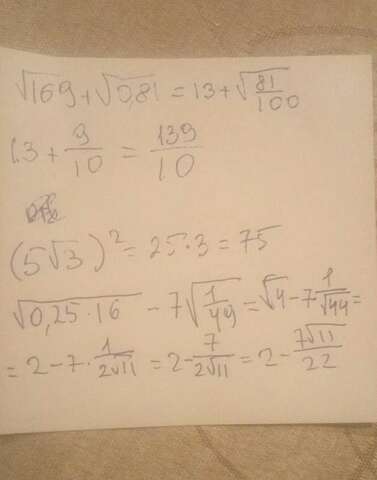 √169 + √0,81 = 13 + √81/100
13 + 9/10 = 139/10
(5√3)² = 25·3 = 75
√0,25·16 - 7√1/44 = √4 - 7·1/√44 =
= 2 - 7·1/2√11 = 2 - 7/2√11 = 2 - 7√11/22